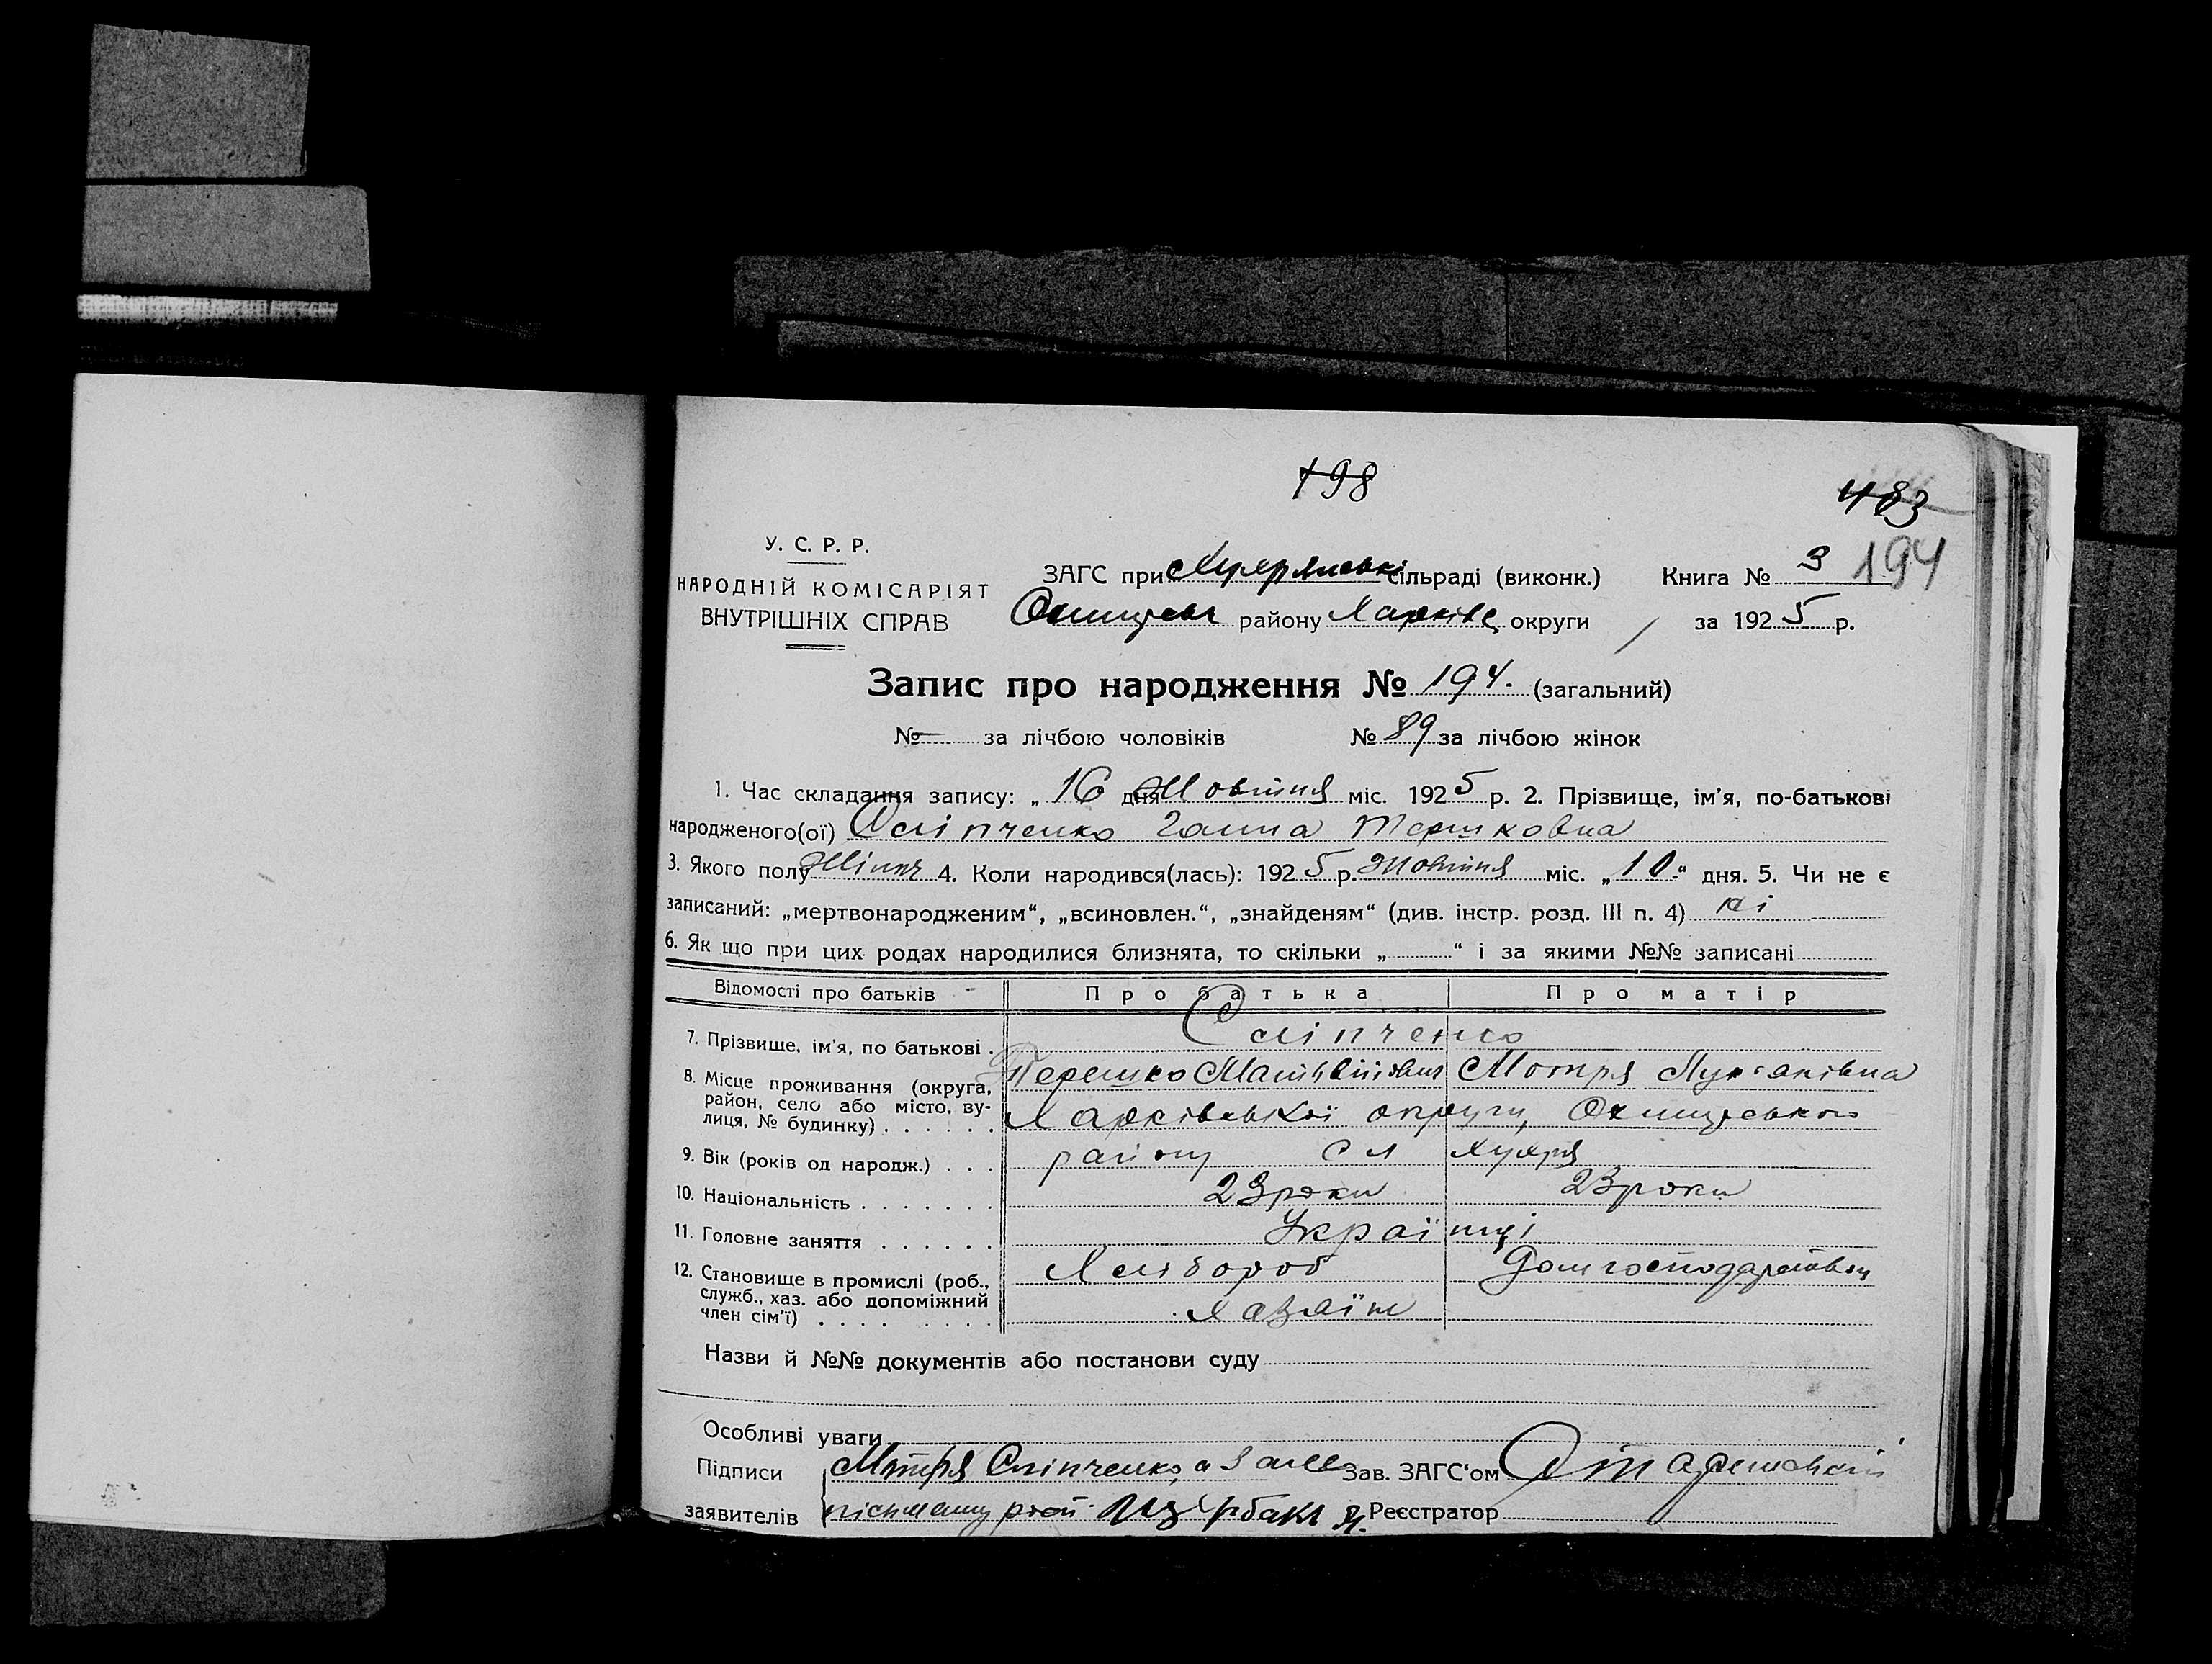 198
483
У. С. Р. Р.
НАРОДНІЙ КОМІСАРІЯТ
ВНУТРІШНІХ СПРАВ
ЗАГС при Хухрянські сільраді (виконк.)
Книга № 3 194
Охтирськ району Харківс округи
за 1925 р.
Запис про народження № 194. (загальний)
№ — за лічбою чоловіків № 89 за лічбою жінок
1. Час складання запису: „ 16 дня Жовтня міс. 1925 р. 2. Прізвище, ім'я, по-батькові
народженого(ої) Сліпченко Ганна Терешковна
3. Якого полу Жіноч 4. Коли народився(лась): 1925 р. Жовтня міс. „10“ дня. 5. Чи не є
записаний: „мертвонародженим“, „всиновлен.“, „знайденям“ (див. інстр. розд. III п. 4) ні
6. Як що при цих родах народилися близнята, то скільки „ “ і за якими №№ записані
Відомості про батьків Про батька Про матір
7. Прізвище, ім'я, по батькові . Сліпченко
Терешко Матвійович Мотря Лук'янівна
8. Місце проживання (округа, район, село або місто, вулиця, № будинку) . . . . . . Харківської округи, Охтирського
9. Вік (років од народж.) . . . району сл Хухря
10. Національність . . . . . . . 23 роки 23 роки
11. Головне заняття . . . . . . Українці
12. Становище в промислі (роб., Хлібороб Дом господарством
служб., хаз. або допоміжний член сім'ї) . . . . . . . . . Хазяїн
Назви й №№ документів або постанови суду
Особливі уваги
Підписи Мотря Сліпченко, а за неє Зав. ЗАГС'ом
заявителів Реєстратор